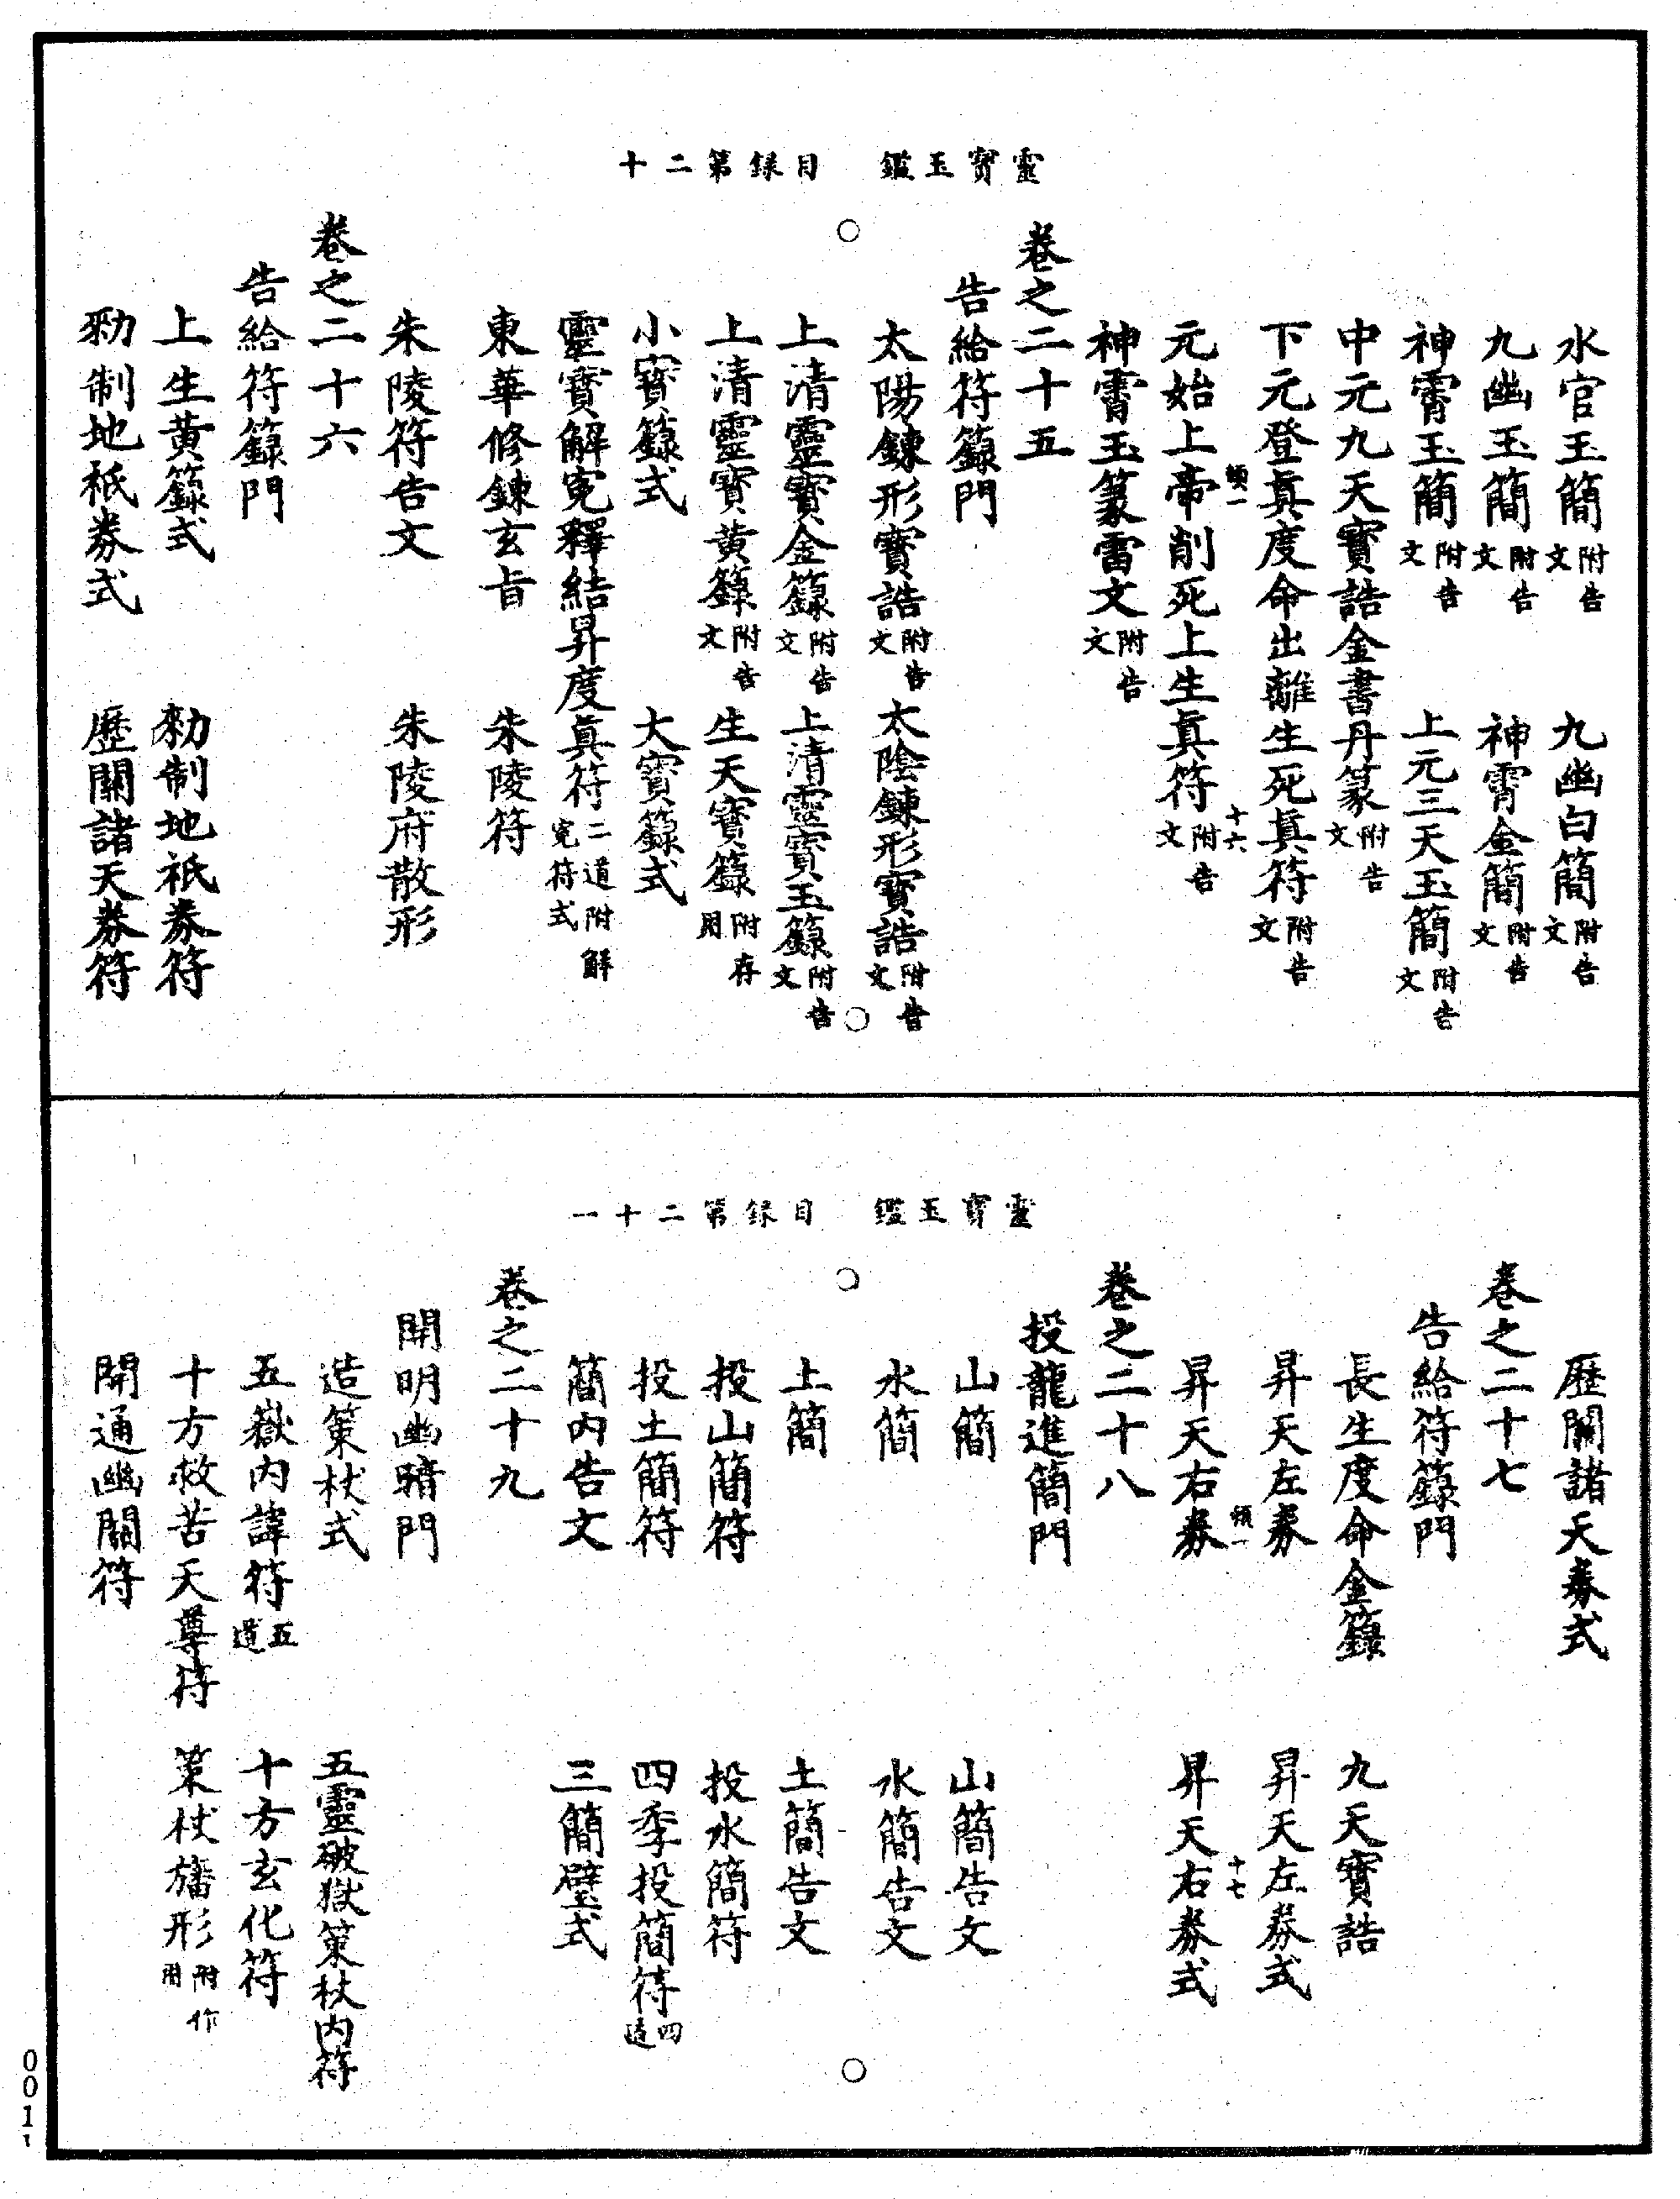 靈寶玉鑑　目録第二十
水官玉簡附告文　九幽白簡附告文
九幽玉簡附告文　神霄金簡附告文
神霄玉簡附告文　上元三天玉簡附告文
中元九天寶誥金書丹篆附告文
下元登真度命出離生死真符附告文
傾一　十六
元始上帝削死上生真符附告文
神霄玉篆雷文附告文
卷之二十五
告給符籙門
太陽鍊形寶誥附告文　太陰鍊形寶誥附告文
上清靈寶金籙附告文　上清靈寶玉籙附告文
上清靈寶黄籙附告文　生天寶籙附存用
小寶籙式　大寶籙式
靈寶解寃釋結昇度真符二道附解寃符式
東華修鍊玄旨　朱陵符
朱陵符告文　朱陵府散形
卷之二十六
告給符籙門
上生黄籙式　勑制地祇券符
勑制地祇券式　歷關諸天券符
靈寶玉鑑　目録第二十一
歷關諸天券式
卷之二十七
告給符籙門
長生度命金籙　九天寶誥
昇天左券　昇天左券式
傾一　十七
昇天右券　昇天右券式
卷之二十八
投龍進簡門
山簡　山簡告文
水簡　水簡告文
土簡　土簡告文
投山簡符　投水簡符
投土簡符　四季投簡符四道
簡内告文　三簡璧式
卷之二十九
開明幽暗門
造策杖式　五靈破獄策杖内符
五嶽内諱符五道　十方玄化符
十方救苦天尊符　策杖旛形附作用
開通幽關符
001